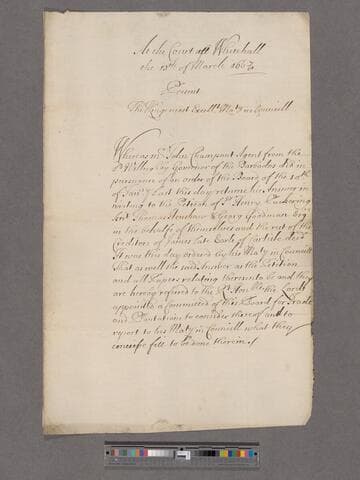 At the Court att Whitehall
the 13th of March 166
Present
The Kings most Excellt Maty in Councill
Whereas mr John Champant Agent from the
Ld Willoughby Governor of the Barbados did in
pursuance of an order of the Board of the
of Janry last this day returne his Answer in
writing to the Peticon of Sr Henry Puckering
Knt Thomas Henshaw & Georg Goodman Esqrs
in the behalfe of themselves and the rest of the
Creditors of James late Earle of Carlisle decd
It was this day ordered by his Maty in Councill
That as well the said Answer as the Peticion
and all Papers relating thereunto be and they
are hereby referred to the Rt Honble the Lords
appointed a Committee of this Board for Trade
and Plantations to consider thereof and to
report to his Maty in Councill what they
conceive fitt to be done therein./